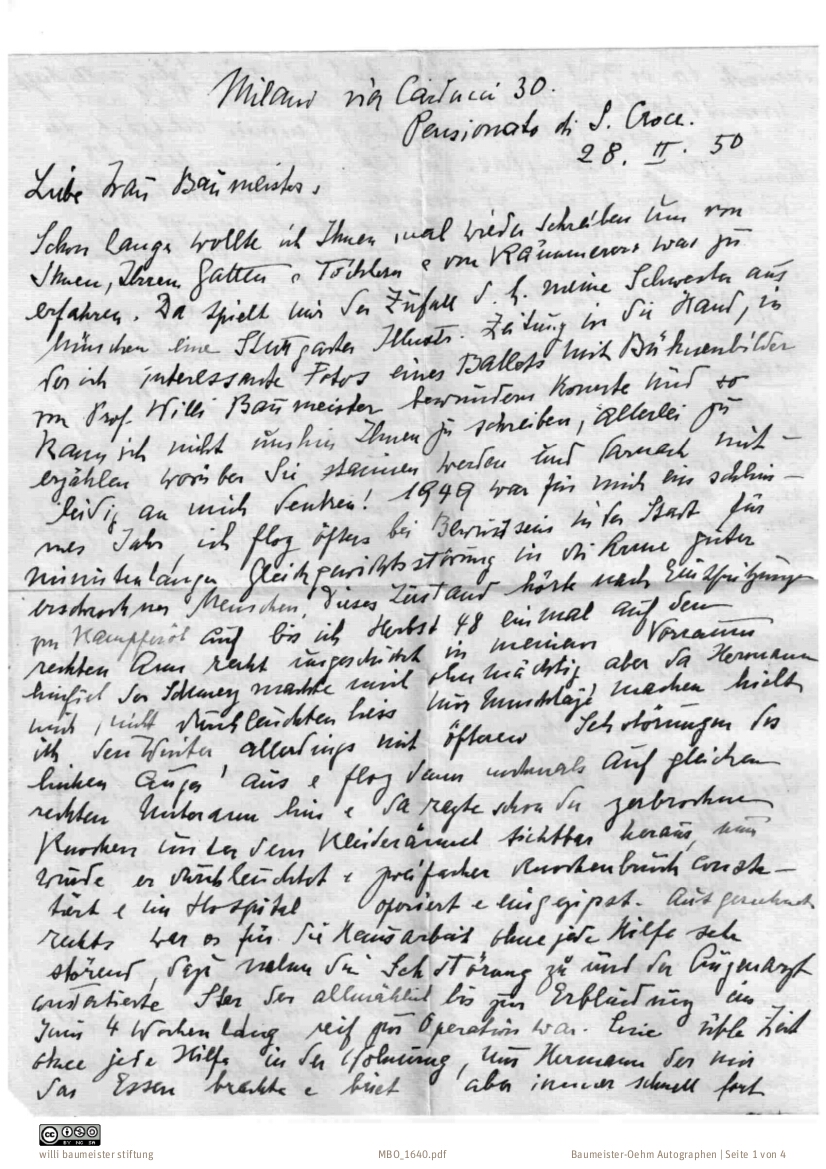 Milano via Carducci 30.
Pensionato di S. Croce.
28. II. 50
Liebe Frau Baumeister,
Schon lange wollte ich Ihnen mal wieder schreiben um von
Ihnen, Ihrem Gatten e Töchtern e von Kämmerers was zu
erfahren. Da spielt mir der Zufall d. h. meine Schwester aus
München eine Stuttgarter Illustr. Zeitung in die Hand, in
der ich interessante Fotos eines Ballets mit Bühnenbilder
von Prof. Willi Baumeister bewundern konnte und so
kann ich nicht umhin Ihnen zu schreiben, allerlei zu
erzählen worüber Sie staunen werden und darnach mit-
leidig an mich denken! 1949 war für mich ein schlim-
mes Jahr, ich flog öfters bei Bewusstsein in der Stadt für
minutenlanger Gleichgewichtsstörung in die Arme guter
erschrockner Menschen, dieses Zustand hörte nach Einspritzungen
von Kampferöl auf bis ich Herbst 48 einmal auf den
rechten Arm recht ungeschickt in meinem Vorraum
hinfiel der Schmerz machte mich ohnmächtig aber da Hermann
mich nicht durchleuchten liess nur Umschläge machen hielt
ich den Winter allerdings mit öfteren Sehstörungen des
linken Auges aus e flog dann nochmals auf gleichen
rechten Unterarm hin e da ragte schon der zerbrochene
Knochen unter dem Kleiderärmel sichtbar heraus, nun
wurde er durchleuchtet e zweifacher Knochenbruch consta-
tiert e im Hospital operiert e eingegipst. Ausgerechnet
rechts war es für die Hausarbeit ohne jede Hilfe sehr
störend, dazu nahm die Sehstörung zu und der Augenarzt
constatierte Star der allmählich bis zur Erblindung im
Juni 4 Wochen lang reif zur Operation war. Eine üble Zeit
ohne jede Hilfe in der Wohnung, nur Hermann der mir
das Essen brachte e aber immer schnell fort
willi baumeister stiftung
MBO_1640.pdf
Baumeister-Oehm Autographen | Seite 1 von 4
CC BY NC SA